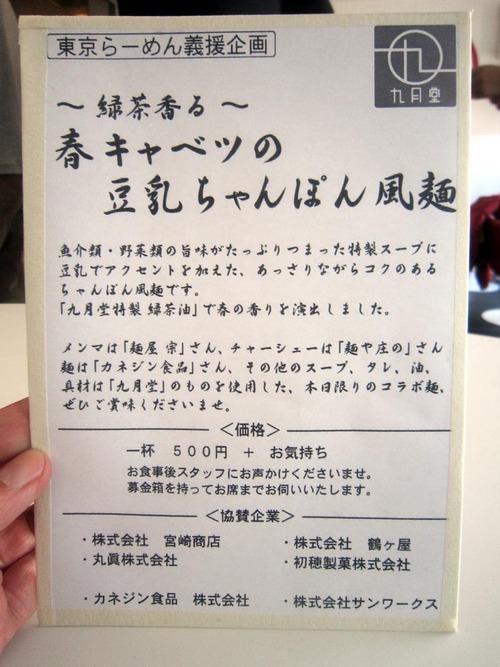 東京らーめん義援企画
九月堂
～緑茶香る～
春キャベツの
豆乳ちゃんぽん風麺
魚介類・野菜類の旨味がたっぷりつまった特製スープに
豆乳でアクセントを加えた、あっさりながらコクのある
ちゃんぽん風麺です。
「九月堂特製 緑茶油」で春の香りを演出しました。
メンマは「麺屋 宗」さん、チャーシューは「麺や庄の」さん
麺は「カネジン食品」さん、その他のスープ、タレ、油、
具材は「九月堂」のものを使用した、本日限りのコラボ麺、
ぜひご賞味くださいませ。
＜価格＞
一杯 ５００円 ＋ お気持ち
お食事後スタッフにお声かけくださいませ。
募金箱を持ってお席までお伺いいたします。
＜協賛企業＞
・株式会社 宮崎商店 ・株式会社 鶴ヶ屋
・丸眞株式会社 ・初穂製菓株式会社
・カネジン食品 株式会社 ・株式会社サンワークス